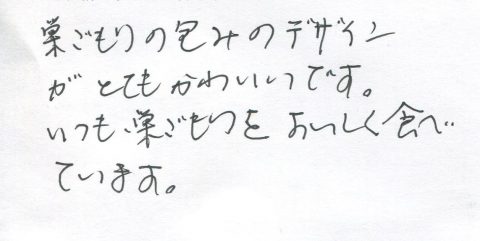 巣ごもりの包みのデザイン
がとてもかわいいです。
いつも巣ごもりを おいしく食べ
ています。